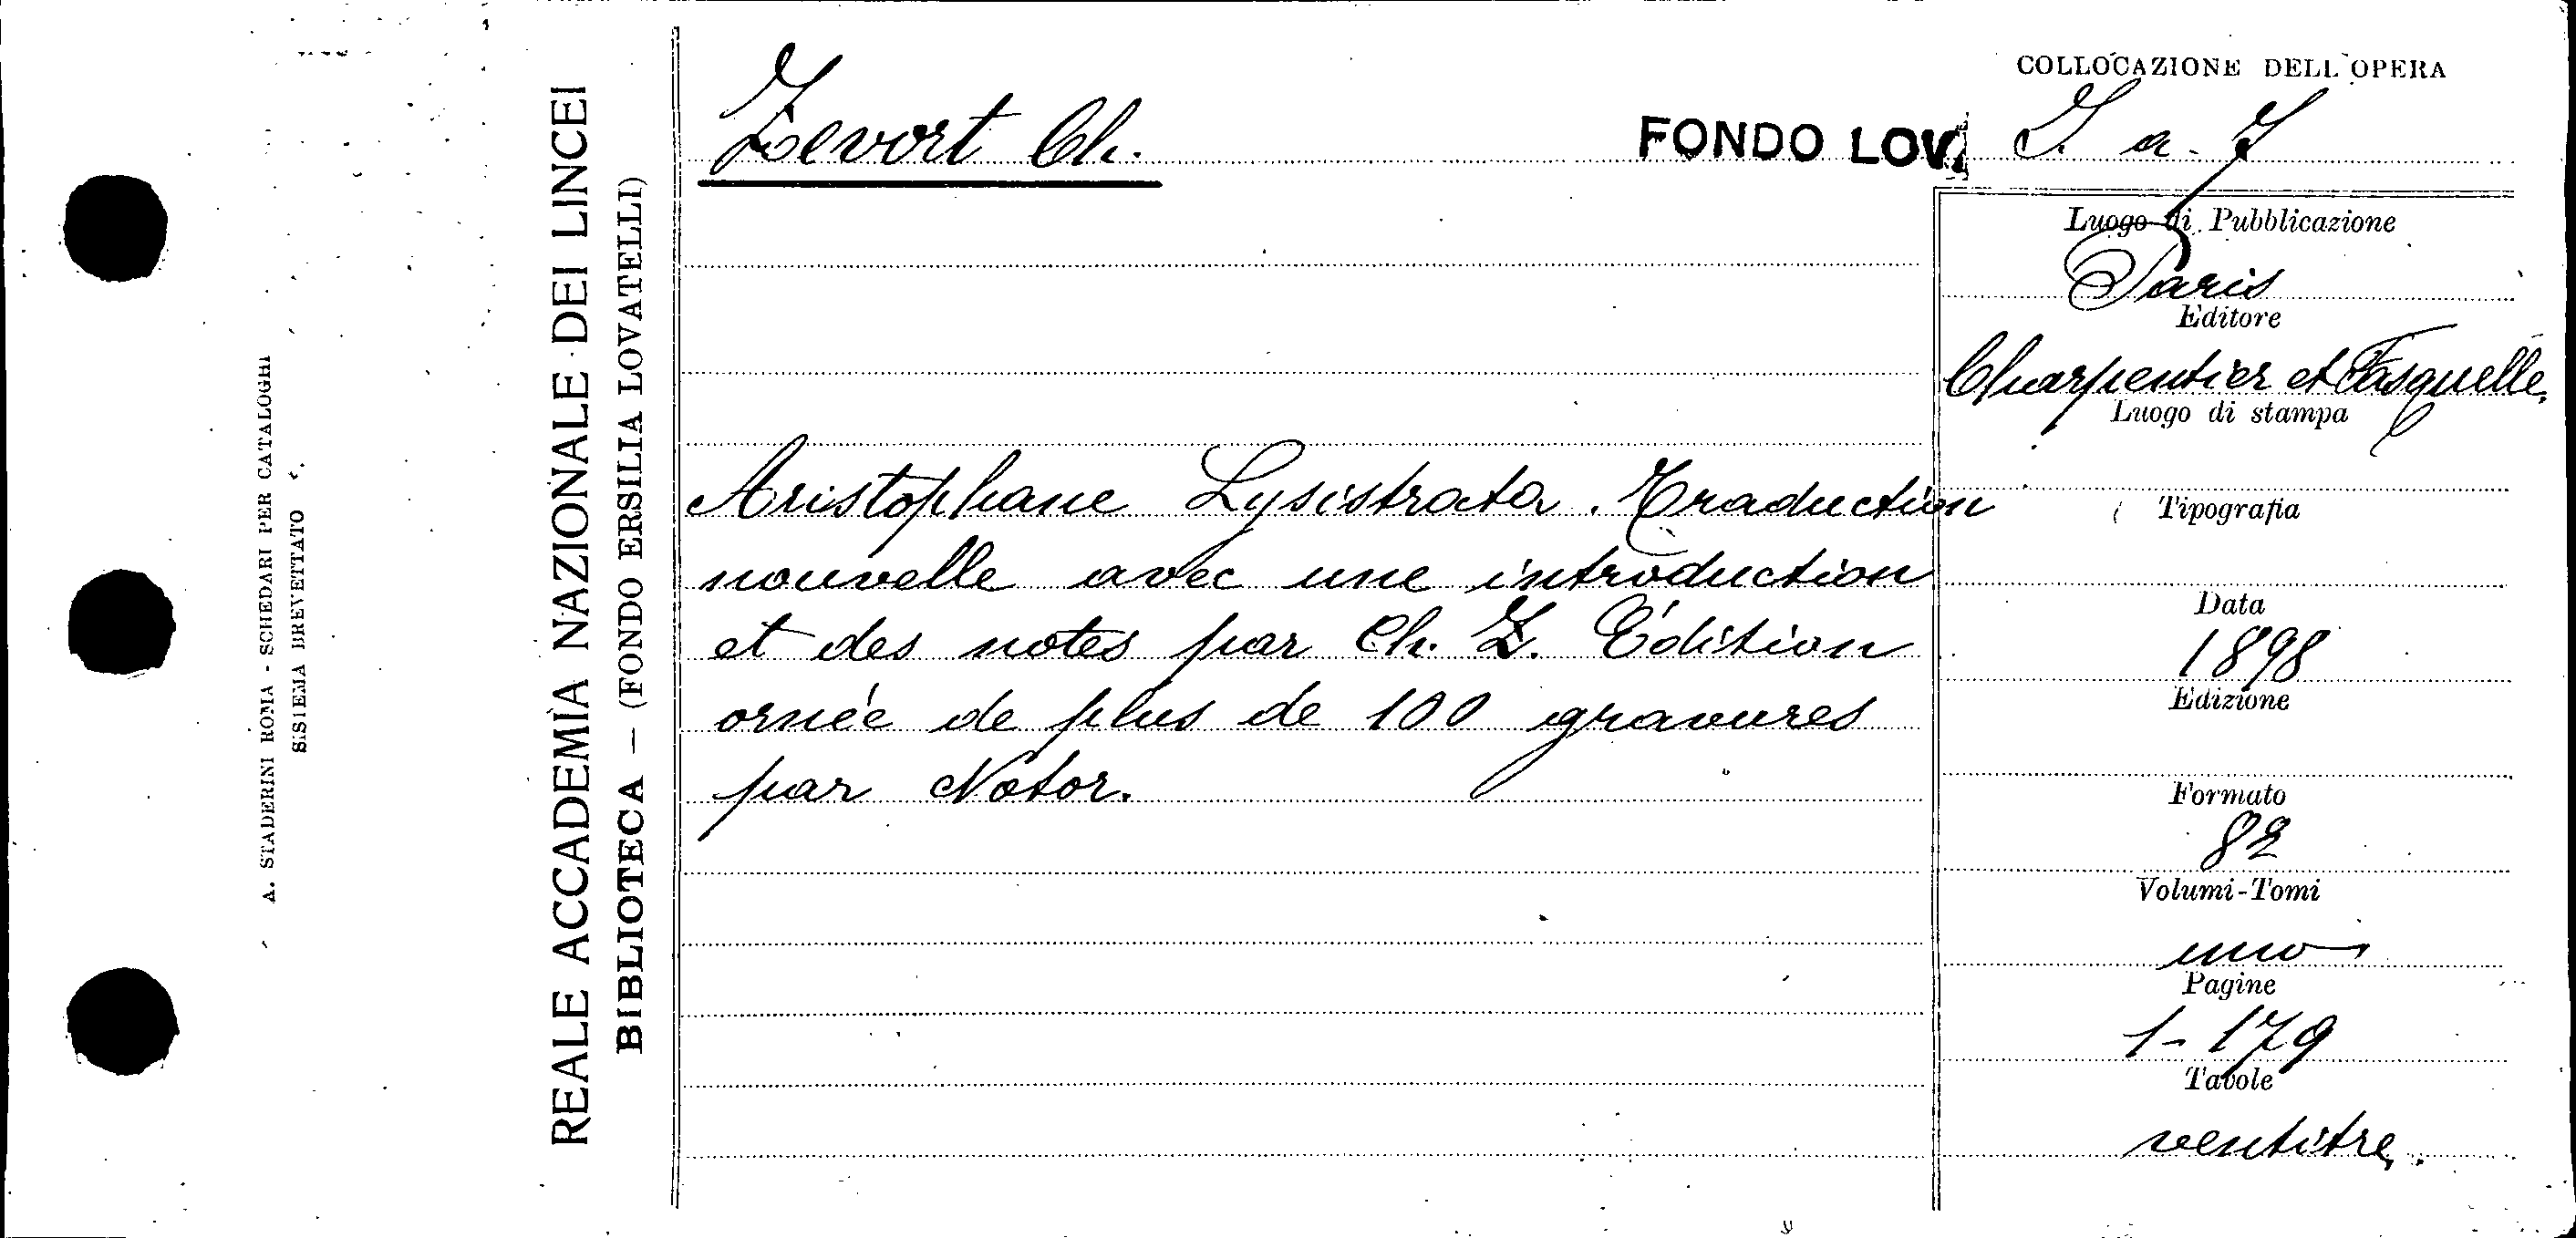 A. STADERINI ROMA - SCHEDARI PER CATALOGHI
SISTEMA BREVETTATO
REALE ACCADEMIA NAZIONALE DEI LINCEI
BIBLIOTECA — (FONDO ERSILIA LOVATELLI)
Zevort Ch.
FONDO LOV
COLLOCAZIONE DELL'OPERA
I. a. 7
Aristophane Lysistrata. Traduction
nouvelle avec une introduction
et des notes par Ch. Z. Édition
ornée de plus de 100 gravures
par Notor.
Luogo di Pubblicazione
Paris
Editore
Charpentier et Fasquelle.
Luogo di stampa
Tipografia
Data
1898
Edizione
Formato
8º
Volumi-Tomi
uno
Pagine
1-179
Tavole
ventitre.